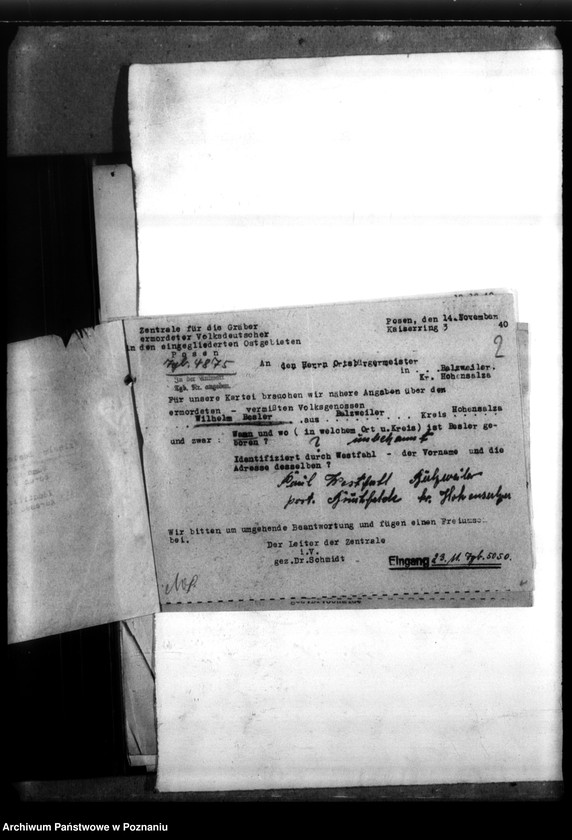 Zentrale für die Gräber
ermordeter Volksdeutscher
in den eingegliederten Ostgebieten
Posen
Posen, den 14.November
Kaiserring 3 40
2
Tgb. 4875
An den Herrn Ortsbürgermeister
in . . Balzweiler.
Kr. Hohensalza
Für unsere Kartei brauchen wir nähere Angaben über den
ermordeten - vermißten Volksgenossen
Wilhelm Besler aus Balzweiler Kreis Hohensalza
und zwar : Wann und wo ( in welchem Ort u.Kreis) ist Besler ge-
boren ? ? unbekannt
Identifiziert durch Westfahl - der Vorname und die
Adresse desselben ?
Paul Westfall
post. Kr. Hohensalza
Wir bitten um umgehende Beantwortung und fügen einen
bei.
Der Leiter der Zentrale
i.V.
gez.Dr.Schmidt
Eingang 23. 11. Tgb. 5050.
Archiwum Państwowe w Poznaniu